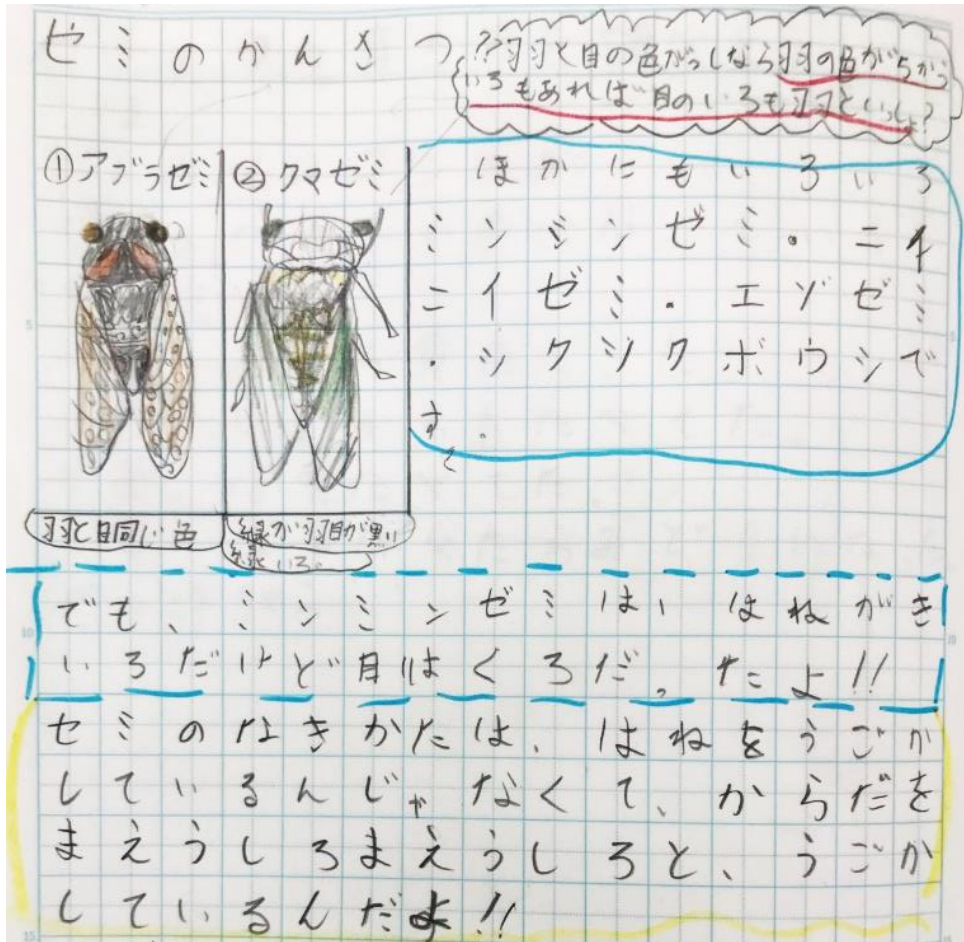 セミのかんさつ
??羽と目の色がっしなら羽の色がちがう
いろもあれば目のいろも羽といっしょ?
①アブラゼミ
②クマゼミ
ほかにもいろいろ
ミンミンゼミ・ニイ
ニイゼミ・エゾゼミ
・ツクツクボウシで
す。
羽と目同じ色
緑が羽目が黒い
緑いろ。
でも、ミンミンゼミは、はねがき
いろだけど目はくろだったよ!!
セミのなきかたは、はねをうごか
しているんじゃなくて、からだを
まえうしろまえうしろと、うごか
しているんだよ!!